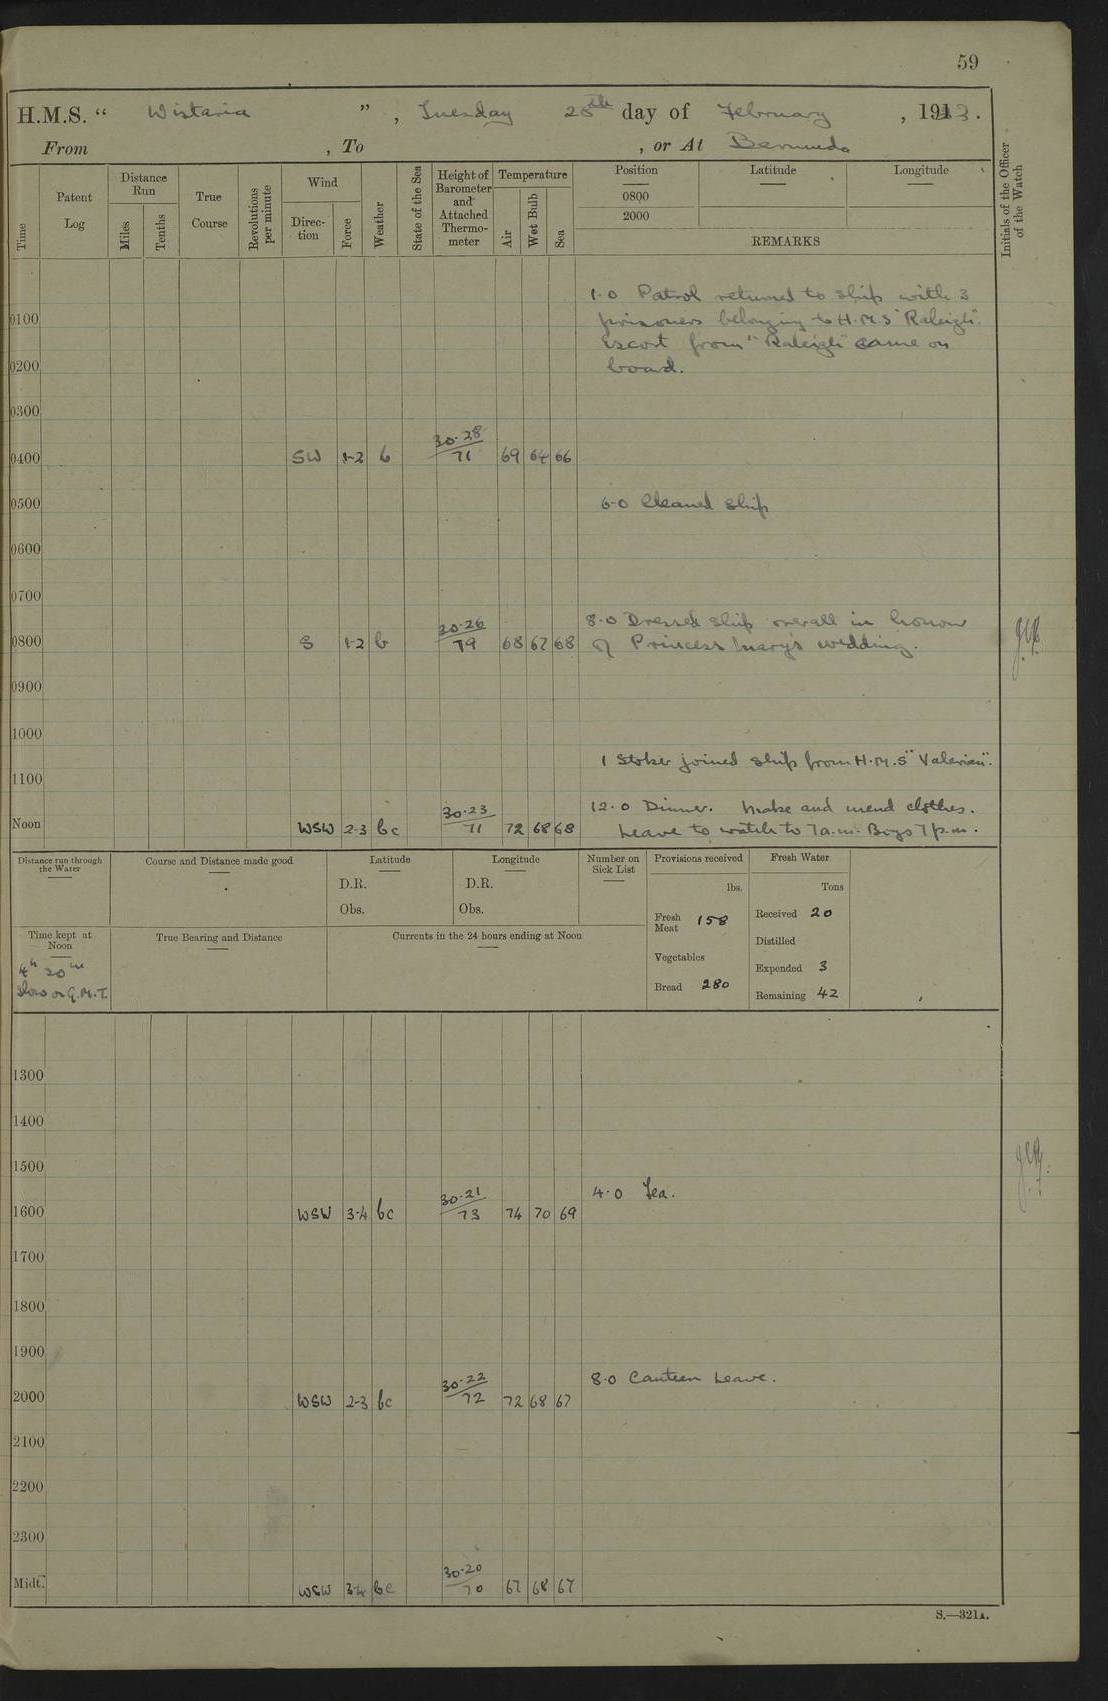 59
H.M.S. " Wistaria ", Tuesday 28th day of February, 19
From , To , or At Bermuda
Time
Patent Log
Distance Run
Miles
Tenths
True Course
Revolutions per minute
Wind
Direction
Force
Weather
State of the Sea
Height of Barometer and Attached Thermometer
Temperature
Air
Wet Bulb
Sea
Position
0800
2000
Latitude
Longitude
REMARKS
Initials of the Officer of the Watch
1.0 Patrol returned to ship with 3
0100 prisoners belonging to H.M.S "Raleigh".
Escort from "Raleigh" came on
0200 board.
0300
0400 SW 1-2 b 30.28/71 69 64 66
0500 6.0 Cleaned ship
0600
0700
8.0 Dressed ship overall in honour
0800 S 1-2 b 30.26/79 68 67 68 of Princess Mary's wedding.
0900
1000
1 Stoker joined ship from H.M.S "Valerian".
1100
12.0 Dinner. Make and mend clothes.
Noon WSW 2-3 bc 30.23/71 72 68 68 Leave to watch to 7a.m. Boys 7p.m.
Distance run through the Water
Course and Distance made good
Latitude
D.R.
Obs.
Longitude
D.R.
Obs.
Number on Sick List
Provisions received
lbs.
Fresh Meat 158
Vegetables
Bread 280
Fresh Water
Tons
Received 20
Distilled
Expended 3
Remaining 42
Time kept at Noon
4h 20m
slow on G.M.T.
True Bearing and Distance
Currents in the 24 hours ending at Noon
1300
1400
1500
4.0 Tea.
1600 WSW 3-4 bc 30.21/73 74 70 69
1700
1800
1900
8.0 Canteen Leave.
2000 WSW 2-3 bc 30.22/72 72 68 67
2100
2200
2300
Midt. WSW 3-4 bc 30.20/70 67 68 67
S.—321A.